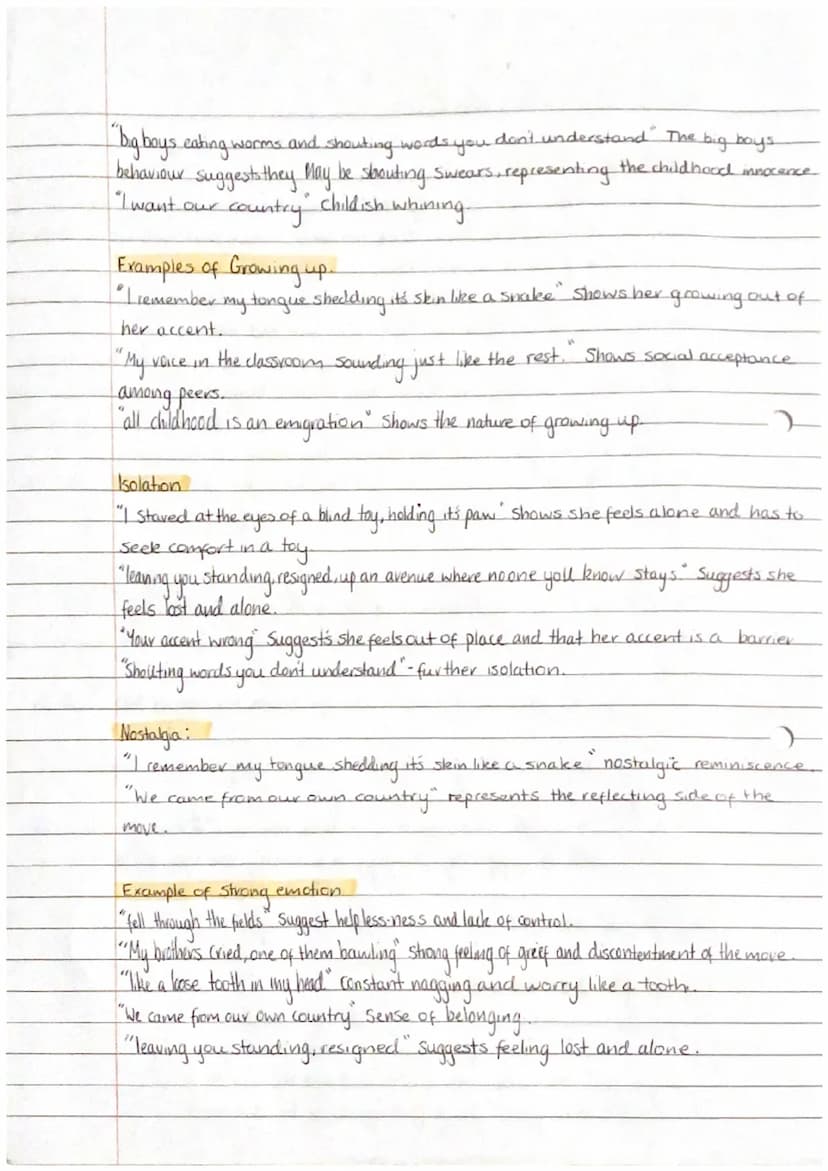 "big boys eating worms and shouting words you don't understand" The big boys
behaviour suggests they May be shouting swears, representing the childhood innocence
"I want our country" Childish whining.
Examples of Growing up.
"I remember my tongue shedding it's skin like a snake" Shows her growing out of
her accent.
"My voice in the classroom sounding just like the rest." Shows social acceptance
among peers.
"all childhood is an emigration" Shows the nature of growing up.
Isolation
"I Stared at the eyes of a blind toy, holding it's paw" Shows she feels alone and has to
seek comfort in a toy.
"leaving you standing, resigned, up an avenue where no one you'll know stays." Suggests she
feels lost and alone.
"Your accent wrong" Suggests she feels out of place and that her accent is a barrier
"Shouting words you don't understand" - further isolation.
Nostalgia:
"I remember my tongue shedding it's skin like a snake" nostalgic reminiscence.
"We came from our own country" represents the reflecting side of the
move.
Example of Strong emotion
"fell through the fields" Suggest helpless-ness and lack of control.
"My brothers cried, one of them bawling" Strong feeling of grief and discontentment of the move.
"like a loose tooth in my head" Constant nagging and worry like a tooth.
"We came from our own country" Sense of belonging.
"leaving you standing, resigned" Suggests feeling lost and alone.